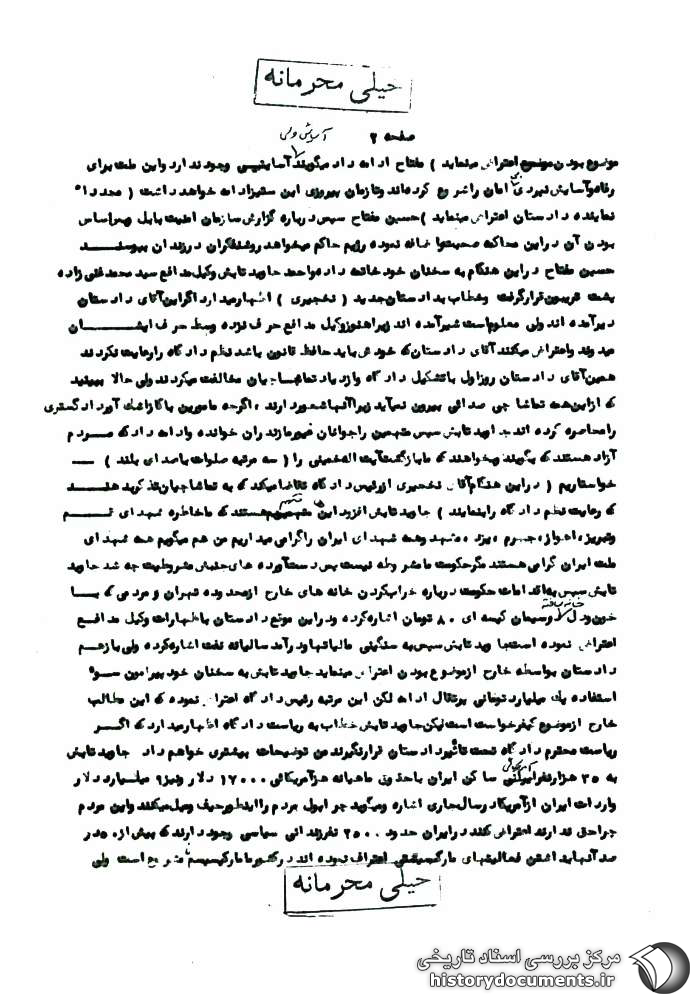 خیلی محرمانه
صفحه ۲ آسایش ولی
موضوع بودن موضوع اعتراض مینماید ) مفتاح ادامه داد میگویند آسایشیسی وجود ندارد و این ملت برای
رفاه و آسایش نبردی امان را شروع کرده‌اند و تا زمان پیروزی این ستیز ادامه خواهد داشت ( مجددا "
نماینده دادستان اعتراض مینماید ) حسین مفتاح سپس درباره گزارش سازمان امنیت بابل و بی اساس
بودن آن در این محاکمه صحبت و اضافه نموده رژیم حاکم میخواهد روشنفکران در زندان بپوسند
حسین مفتاح در این هنگام به سخنان خود خاتمه داد و احمد جاوید تابش وکیل مدافع سید محمد تقی زاده
پشت تریبون قرار گرفت و خطاب به دادستان جدید ( نجیری ) اظهار میدارد اگر این آقای دادستان
دیر آمده اند ولی معلوم است شیر آمده اند زیرا هنوز وکیل مدافع حرف نزده وسط حرف ایشان
میدوند و اعتراض میکنند آقای دادستان که خودش باید حافظ قانون باشد نظم دادگاه را رعایت نکردند
همین آقای دادستان روز اول با تشکیل دادگاه و ازدیاد تماشاچیان مخالفت میکردند ولی حالا ببینید
که از این همه تماشاچی صدائی بیرون نمیآید زیرا آنها شعور دارند ، اگرچه مامورین با گاز اشک آور دادگستری
را محاصره کرده اند جاوید تابش سپس متهمین را جوانان غیور مازندران خوانده و ادامه داد که مردم
آزاد هستند که بگویند و بخواهند که ما بازگشت آیت اله خمینی را ( سه مرتبه صلوات با صدای بلند ) —
خواستاریم ( در این هنگام آقای نجیری از رئیس دادگاه تقاضا میکند که به تماشاچیان تذکر بدهند
که رعایت نظم دادگاه را بنمایند ) جاوید تابش افزود این ها متهم هستند که ما خاطره شهدای قم
و تبریز ، اهواز ، جهرم ، یزد ، مشهد و همه شهدای ایران را گرامی میداریم من هم میگویم همه شهدای
ملت ایران گرامی هستند مگر حکومت ما مشروطه نیست پس دست آورده های جنبش مشروطیت چه شد جاوید
تابش سپس به اقدامات حکومت درباره خراب کردن خانه های خارج از محدوده تهران و مردمی که با
خون دل خانه ساخته و سیمان کیسه ای ۸۰ تومان اشاره کرده و در این موقع دادستان با ظهارات وکیل مدافع
اعتراض نموده است جاوید تابش سپس به سنگینی مالیاتها و درآمد سالیانه نفت اشاره کرده ولی باز هم
دادستان بواسطه خارج از موضوع بودن اعتراض مینماید جاوید تابش به سخنان خود پیرامون سوء
استفاده یک میلیارد تومانی پرتقال ادامه لکن این مرتبه رئیس دادگاه اعتراض نموده که این مطالب
خارج از موضوع کیفرخواست است لیکن جاوید تابش خطاب به ریاست دادگاه اظهار میدارد که اگر
ریاست محترم دادگاه تحت تاثیر دادستان قرار نگیرند من توضیحات بیشتری خواهم داد جاوید تابش
به ۳۵ هزار نفر آمریکائی ساکن ایران با حقوق ماهیانه هر آمریکائی ۱۷۰۰۰ دلار و نیز ۹ میلیارد دلار
واردات ایران از آمریکا در سال جاری اشاره و میگوید چرا پول مردم را اینطور حیف و میل میکنند و این مردم
چرا حق ندارند اعتراض کنند در ایران حدود ۳۵۰۰ نفر زندانی سیاسی وجود دارند که بیش از . ه در
صد آنها بداشتن فعالیتهای مارکسیستی اعتراف نموده اند در کشور ما مارکسیسم نا مشروع است ولی
خیلی محرمانه
مرکز بررسی اسناد تاریخی
historydocuments.ir